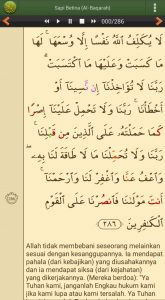 Sapi Betina (Al-Baqarah)
000/286
لَا يُكَلِّفُ اللَّهُ نَفْسًا إِلَّا وُسْعَهَا ۚ لَهَا
مَا كَسَبَتْ وَعَلَيْهَا مَا اكْتَسَبَتْ ۗ
رَبَّنَا لَا تُؤَاخِذْنَا إِن نَّسِينَا أَوْ
أَخْطَأْنَا ۚ رَبَّنَا وَلَا تَحْمِلْ عَلَيْنَا إِصْرًا
كَمَا حَمَلْتَهُ عَلَى الَّذِينَ مِن قَبْلِنَا ۚ
رَبَّنَا وَلَا تُحَمِّلْنَا مَا لَا طَاقَةَ لَنَا بِهِ ۖ
وَاعْفُ عَنَّا وَاغْفِرْ لَنَا وَارْحَمْنَا ۚ
أَنتَ مَوْلَانَا فَانصُرْنَا عَلَى الْقَوْمِ
الْكَافِرِينَ ٢٨٦
Allah tidak membebani seseorang melainkan
sesuai dengan kesanggupannya. Ia mendapat
pahala (dari kebajikan) yang diusahakannya
dan ia mendapat siksa (dari kejahatan)
yang dikerjakannya. (Mereka berdoa): "Ya
Tuhan kami, janganlah Engkau hukum kami
jika kami lupa atau kami tersalah. Ya Tuhan